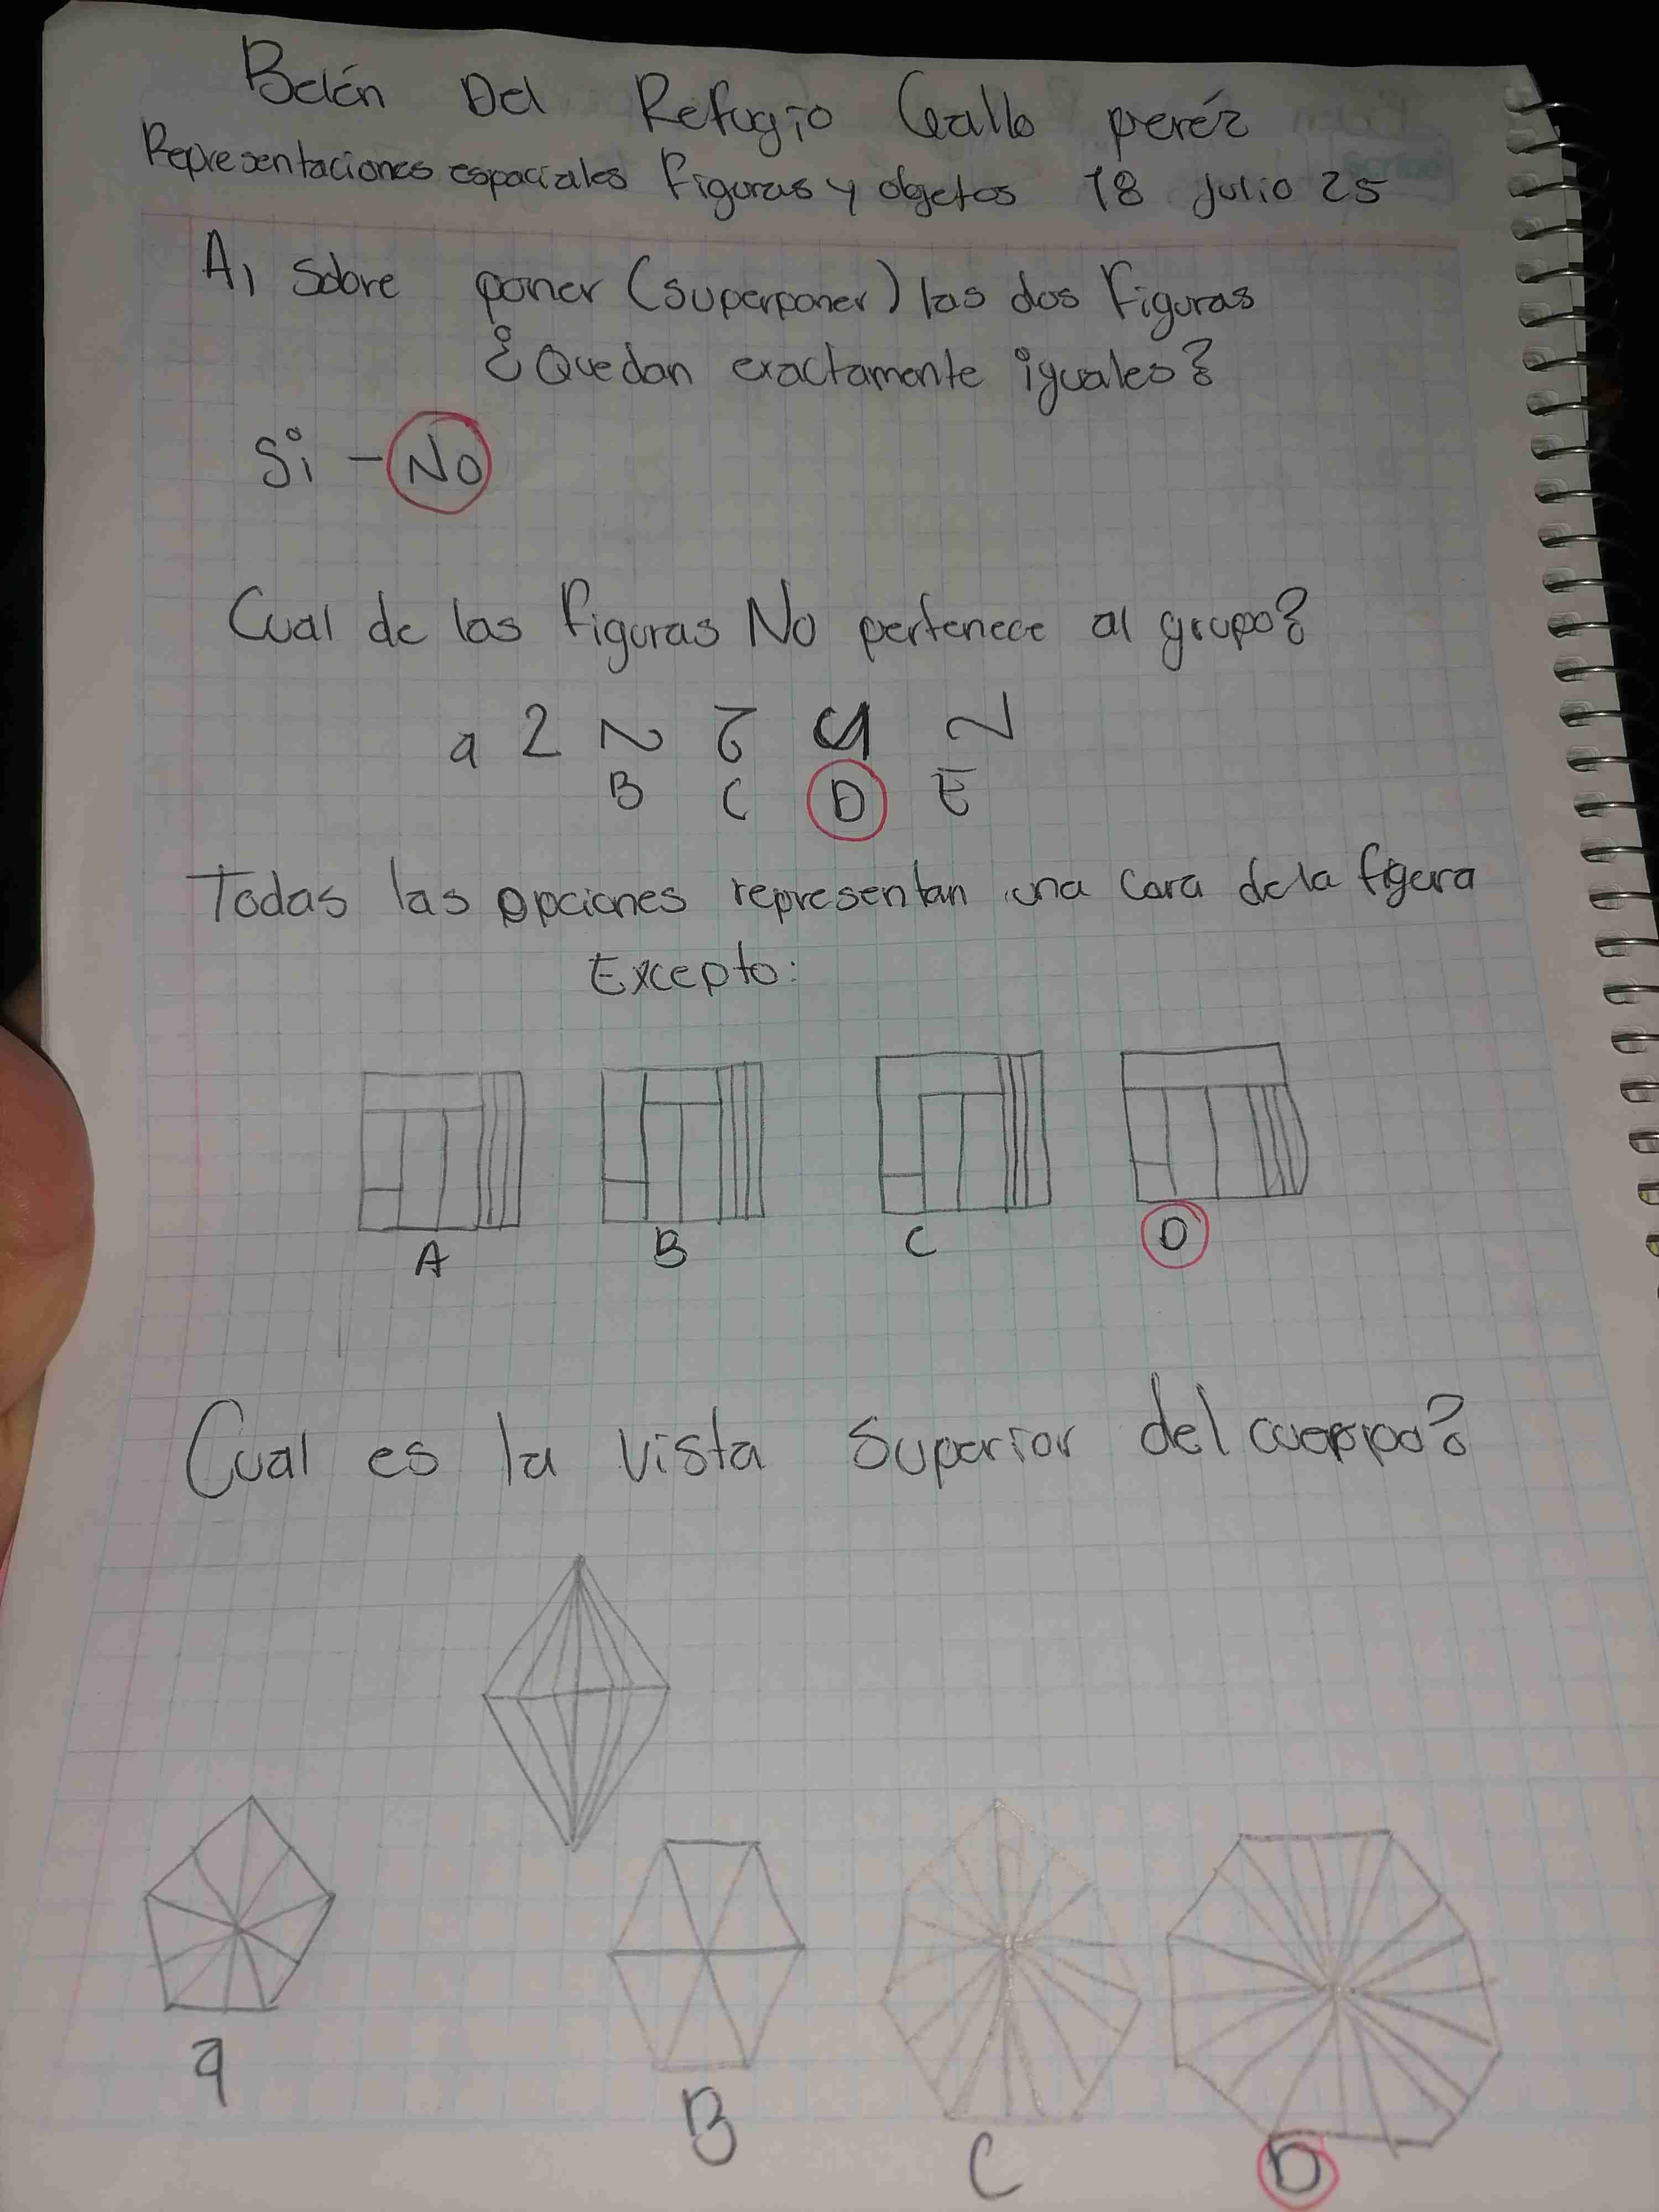 Belén Del Refugio Gallo peréz
Representaciones espaciales Figuras y objetos 18 Julio 25
A, Sobre poner (superponer) las dos Figuras
¿Quedan exactamente iguales?
Si - No
Cual de las Figuras No pertenece al grupo?
a 2
B C D E
Todas las opciones representan una cara de la figura
Excepto:
A B C D
Cual es la vista Superior del cuerpo?
a B C D